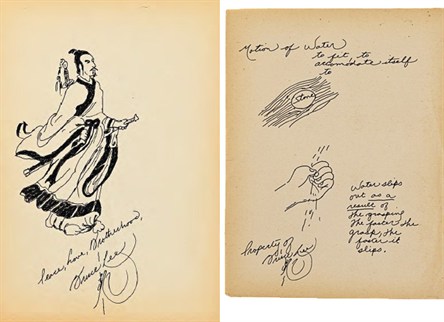 Peace, Love, Brotherhood,
Bruce Lee
Motion of Water
to fit, to
accomodate itself
to
Stone
Water slips
out as a
result of
the grasping
The faster the
grasp, the
faster it
slips.
Property of
Bruce Lee